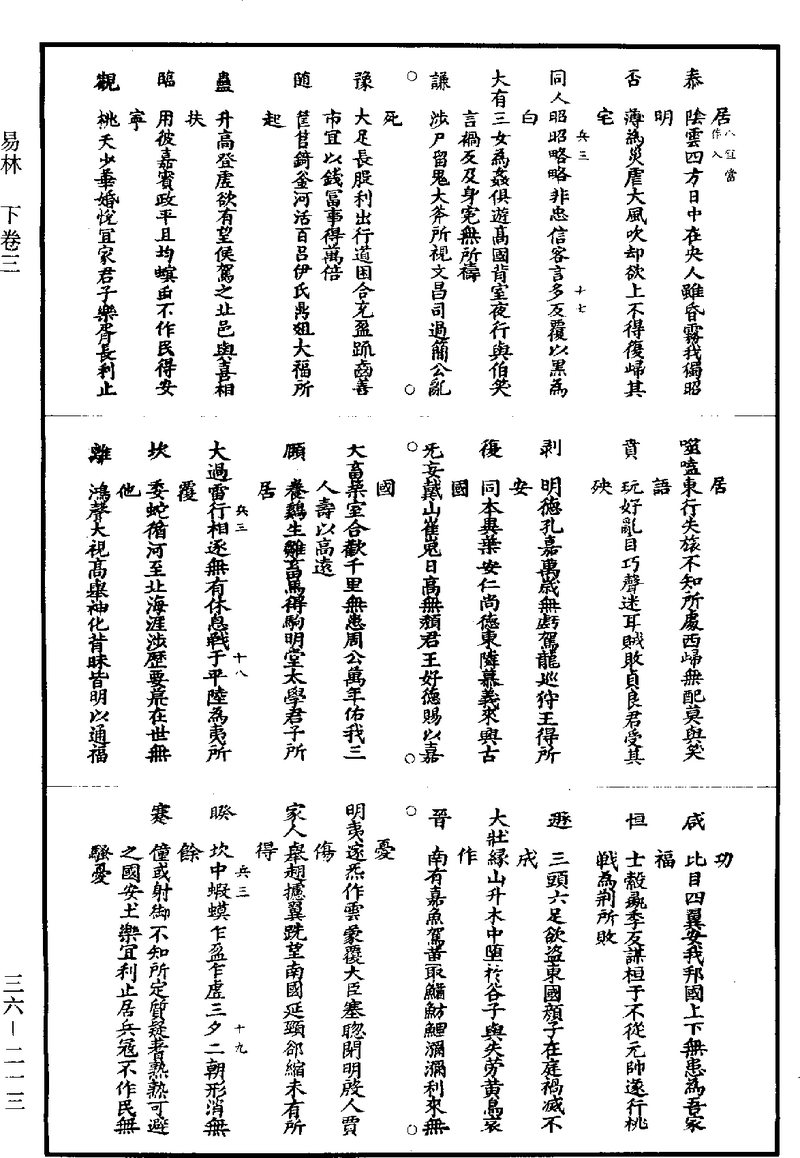 居
泰 陰雲四方日中在央人雖昏霧我獨昭
明
否 薄為災虐大風吹却欲上不得復歸其
宅
兵三 十七
同人昭昭略略非忠信客言多反覆以黑為
白
大有三女為姦俱遊高國背室夜行與伯笑
言禍反及身冤無所禱
謙 涉尸留鬼大斧所視文昌司過簡公亂
死
豫 大足長股利出行道困合充盈疏齒善
市宜以錢富事得萬倍
隨 筐筥錡釜河活百呂伊氏鼎俎大福所
起
蠱 升高登虛欲有望候駕之北邑與喜相
扶
臨 用彼嘉賓政平且均螟虫不作民得安
寧
觀 桃夭少華婚悅宜家君子樂胥長利止
居
噬嗑東行失旅不知所處西歸無配莫與笑
語
賁 玩好亂目巧聲迷耳賊敗貞良君受其
殃
剥 明德孔嘉萬歲無虧駕龍巡狩王得所
安
復 同本異葉安仁尚德東隣慕義來興古
國
无妄戴山崔嵬日高無頹君王好德賜以嘉
國
大畜築室合歡千里無患周公萬年佑我三
人壽以高遠
頤 養鷄生雛畜馬得駒明堂太學君子所
居
兵三 十八
大過雷行相逐無有休息戰于平陸為夷所
覆
坎 委蛇循河至北海涯涉歷要荒在世無
他
離 鴻聲大視高舉神化背昧皆明以通福
功
咸 比目四翼安我邦國上下無患為吾家
福
恒 士殽亂季友謀桓于不從元帥遂行桃
戰為荆所敗
遯 三頭六足欲盜東國顏子在庭禍滅不
成
大壯緣山升木中墮於谷子與失勞黃鳥哀
作
晉 南有嘉魚駕黃取鱐魴鯉瀰瀰利來無
憂
明夷遂炁作雲蒙覆大臣塞聰閉明殷人賈
傷
家人舉翅攄翼跣望南國延頸郤縮未有所
得
兵三 十九
睽 坎中蝦蟆乍盈乍虛三夕二朝形消無
餘
蹇 僮或射御不知所定質疑蓍熟熟可避
之國安土樂宜利止居兵冦不作民無
騷憂
易林 下卷三
三六－二一三